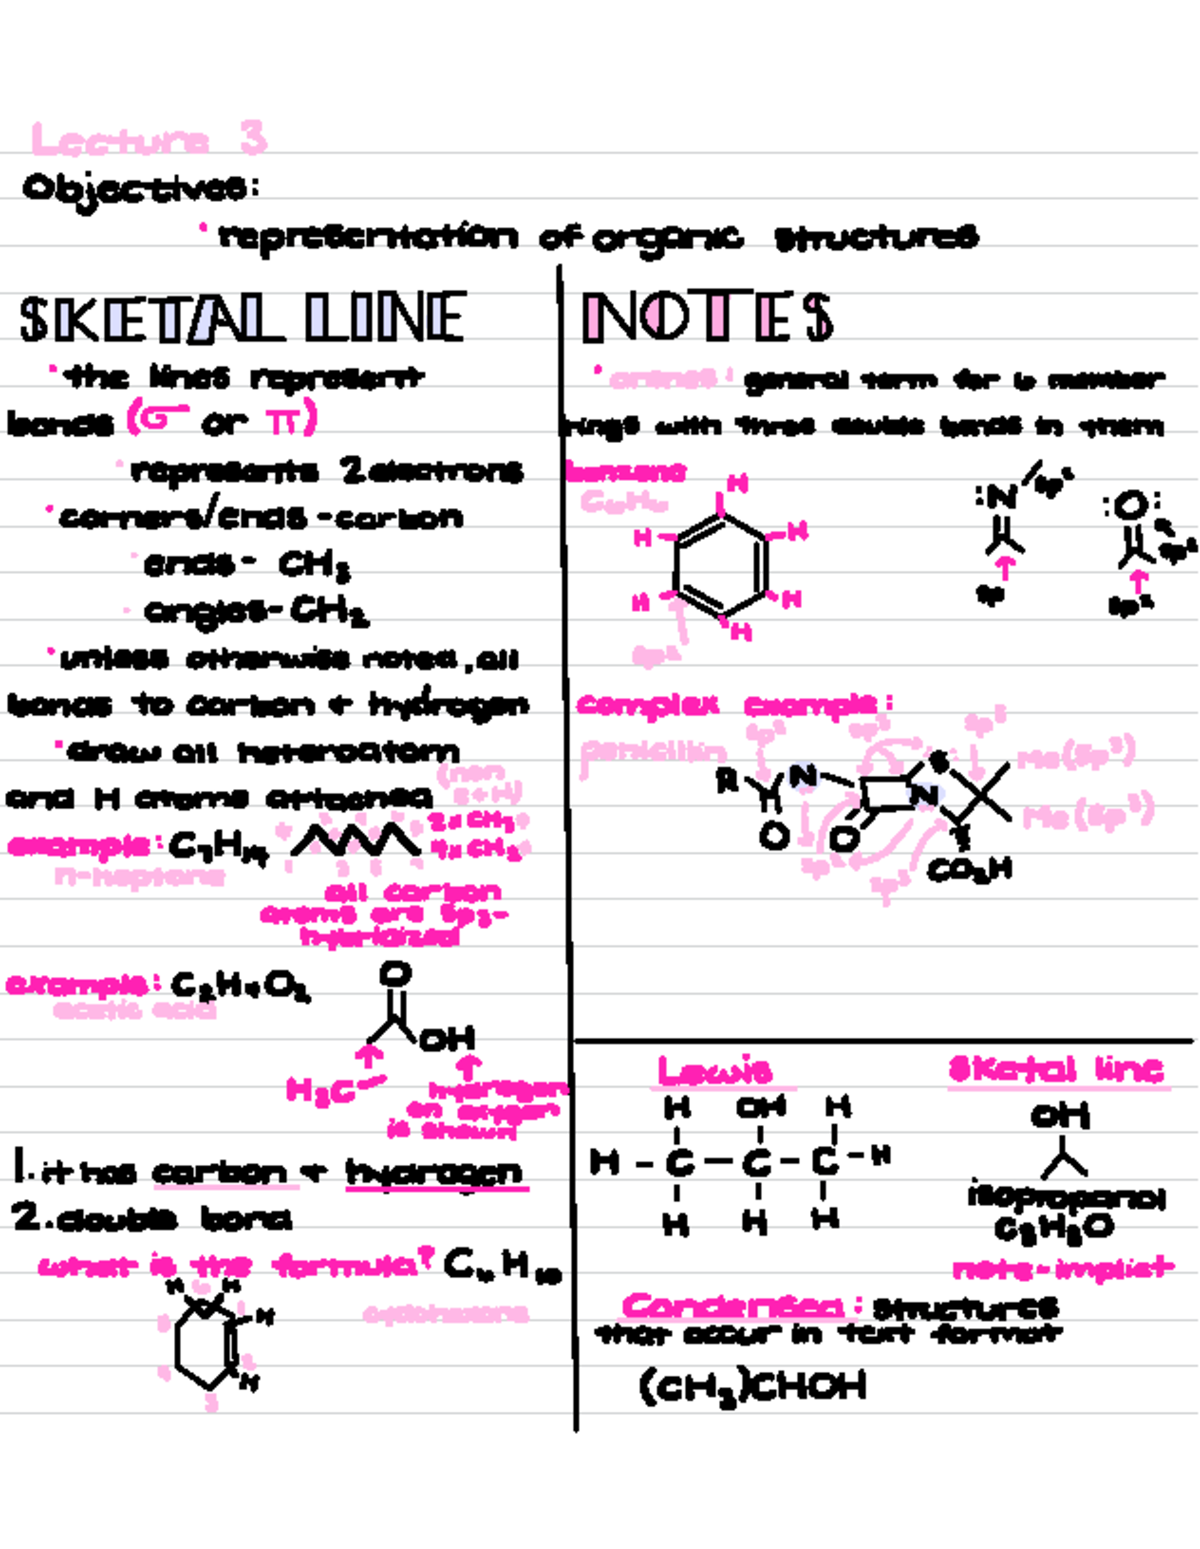 Lecture 3
Objectives:
• representation of organic structures
SKETAL LINE
• the lines represent
bonds (σ or π)
• represents 2 electrons
• corners/ends - carbon
• ends - CH3
• angles - CH2
• unless otherwise noted, all
bonds to carbon + hydrogen
• draw all heteroatom
(non
and H atoms attached
example: C7H14
2x CH3
4x CH2
n-heptane
all carbon
atoms are sp3-
hybridized
example: C2H4O2
acetic acid
O
OH
H3C
hydrogen
on oxygen
is shown
1. it has carbon + hydrogen
2. double bond
what is the formula? C6H10
H H
6
1
H
5
2
4
H
3
NOTES
• arenes: general term for 6 member
rings with three double bonds in them
benzene
C6H6
H
H H
H H
H
sp2
:N sp2
sp
:O:
sp2
sp2
complex example:
penicillin
sp2 sp3 sp3
R N S Me(sp3)
N Me(sp3)
O O
sp2
sp3
CO2H
Lewis
H OH H
H - C - C - C - H
H H H
Sketal line
OH
isopropanol
C3H8O
note-implict
Condensed: structures
that occur in text format
(CH3)CHOH